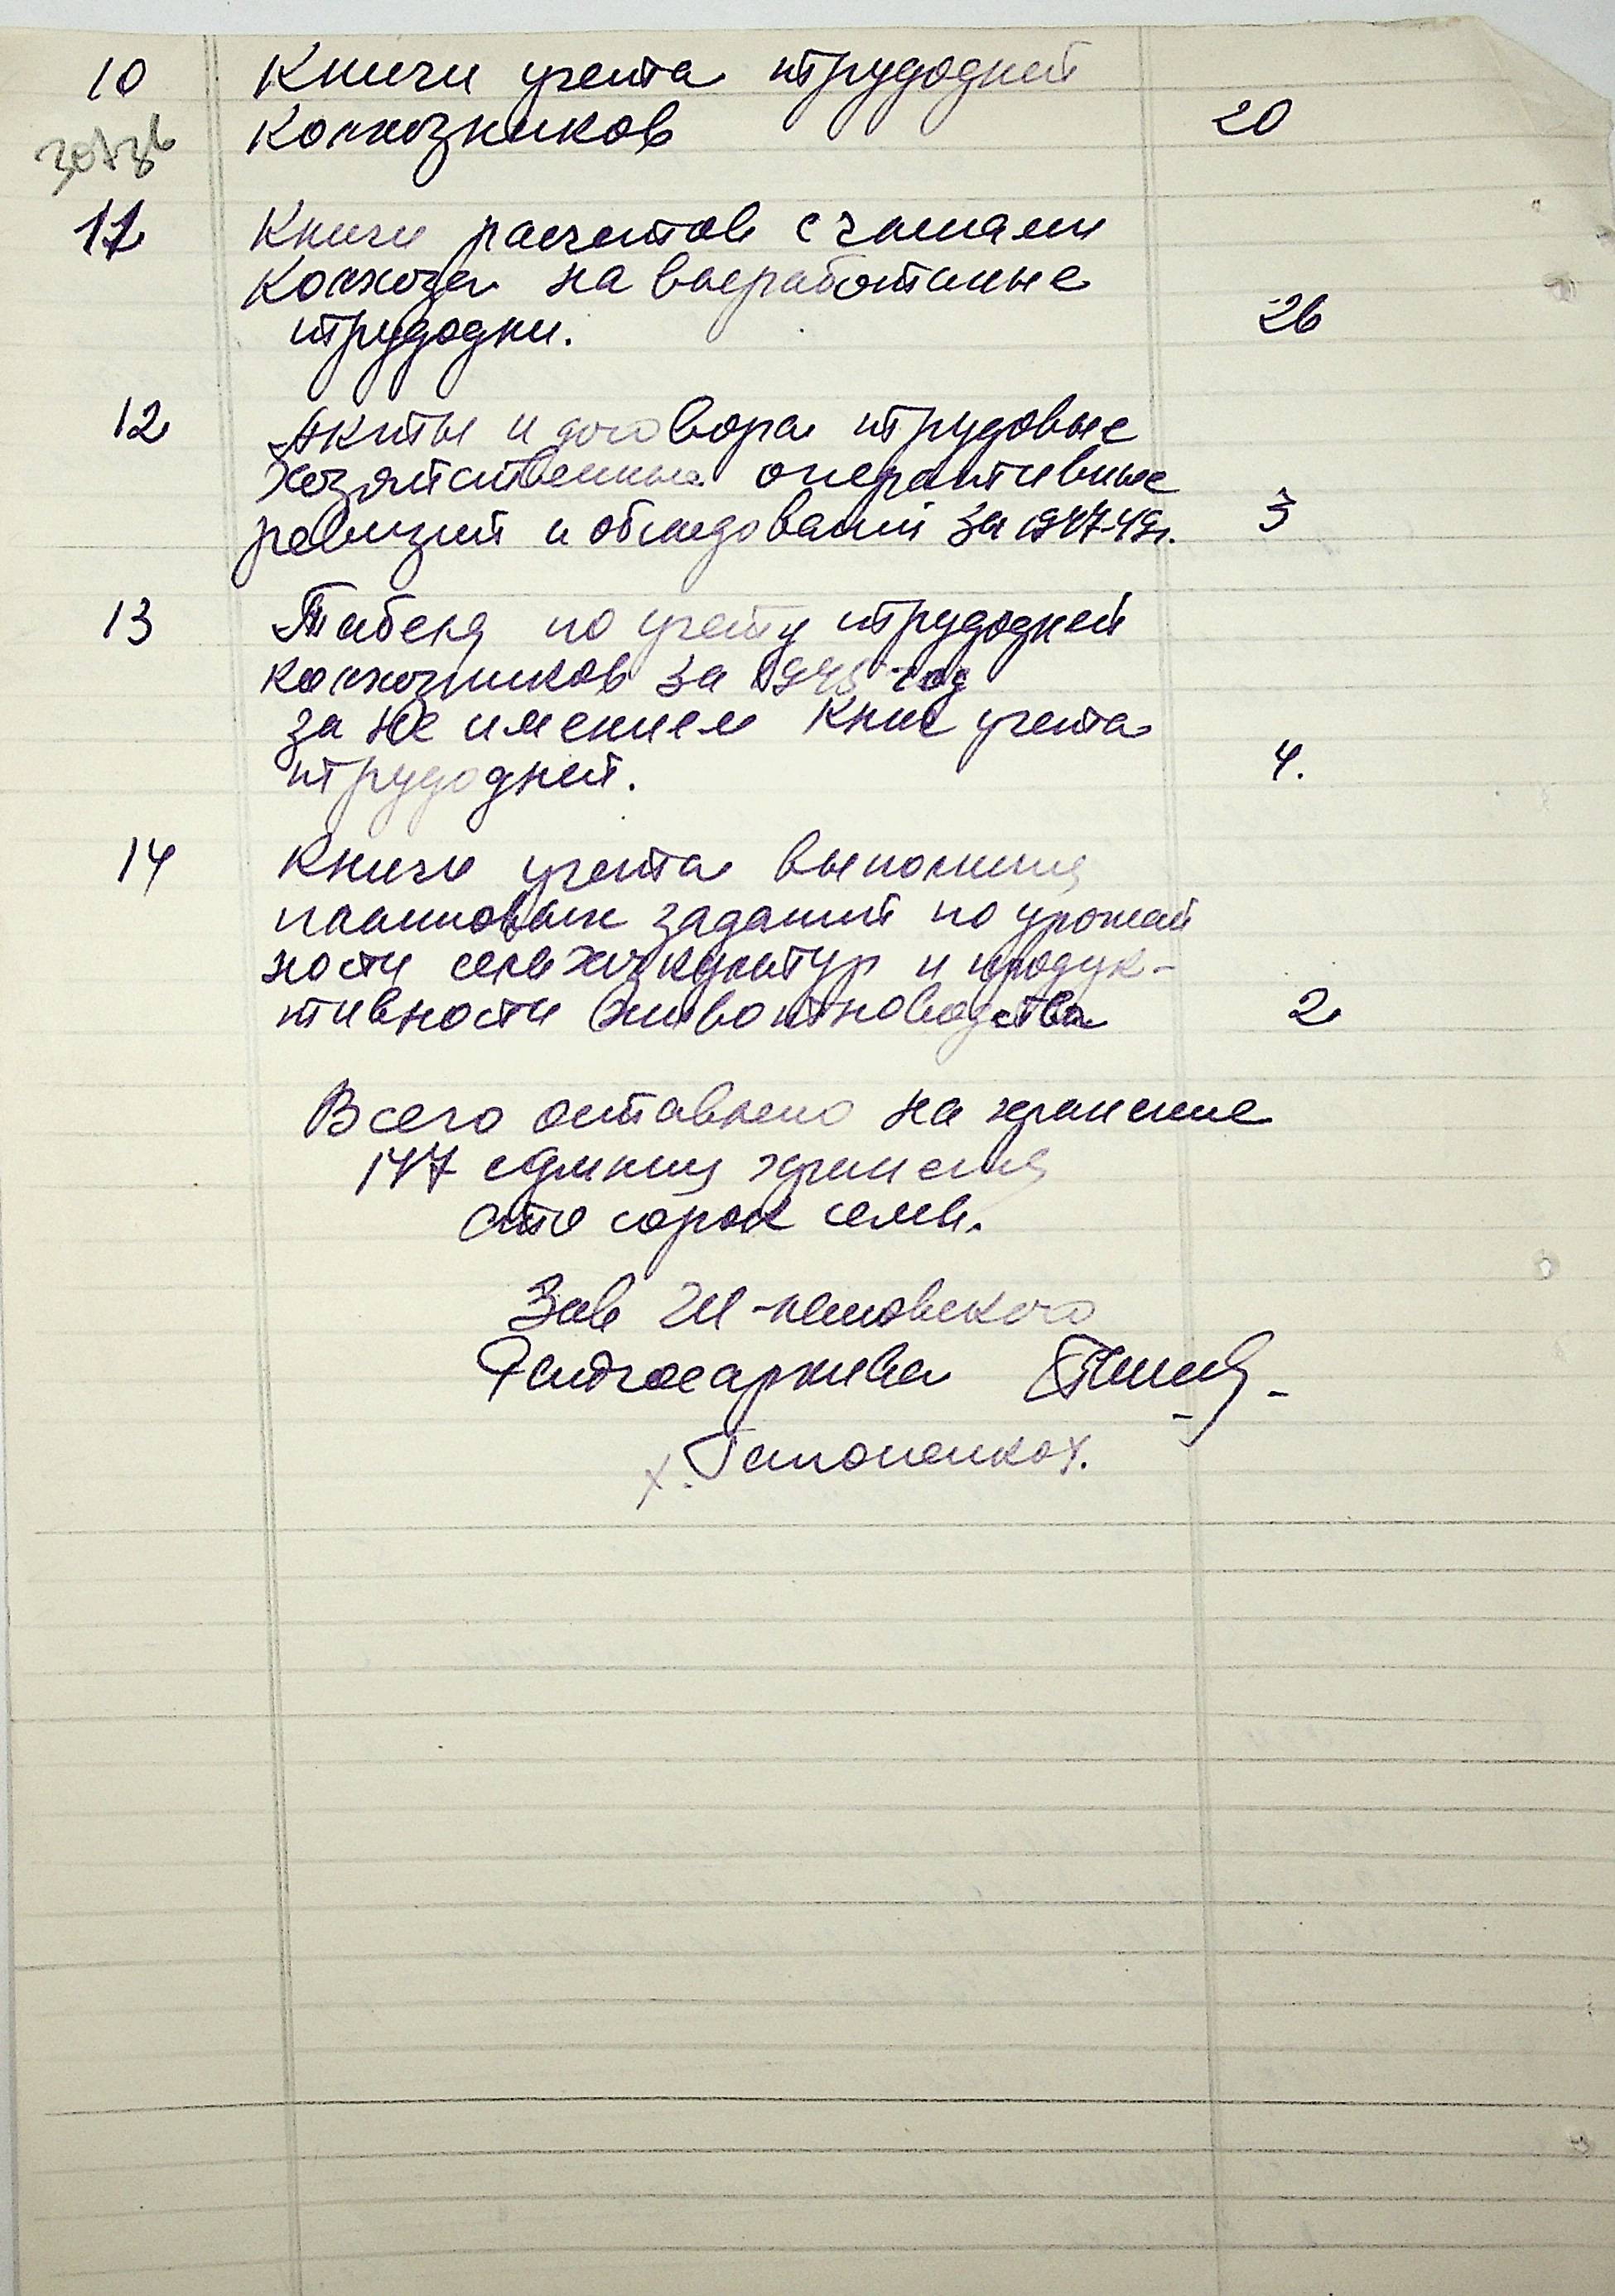 10 Книги учета трудодней
колхозников 20
11 Книги расчетов с членами
колхоза на выработанные
трудодни. 26
12 Акты и договора трудовые
хозяйственные оперативные
ревизий и обследований за 1947-49г. 3
13 Табеля по учету трудодней
колхозников за 1945 год
за не имением книг учета
трудодней. 4.
14 Книги учета выполнения
плановых заданий по урожай
ности сельхозкультур и продук-
тивности животноводства 2
Всего оставлено на хранение
147 единиц хранения
сто сорок семь.
Зав
Райгосархива